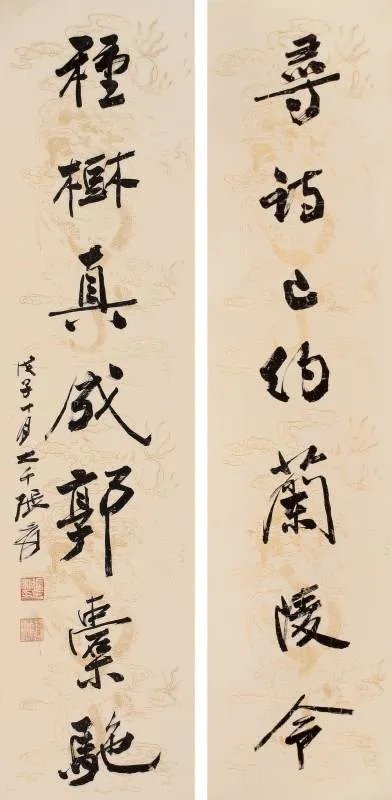 尋詩已約蘭陵令
種樹真成郭橐駝
戊子十月大千張爰